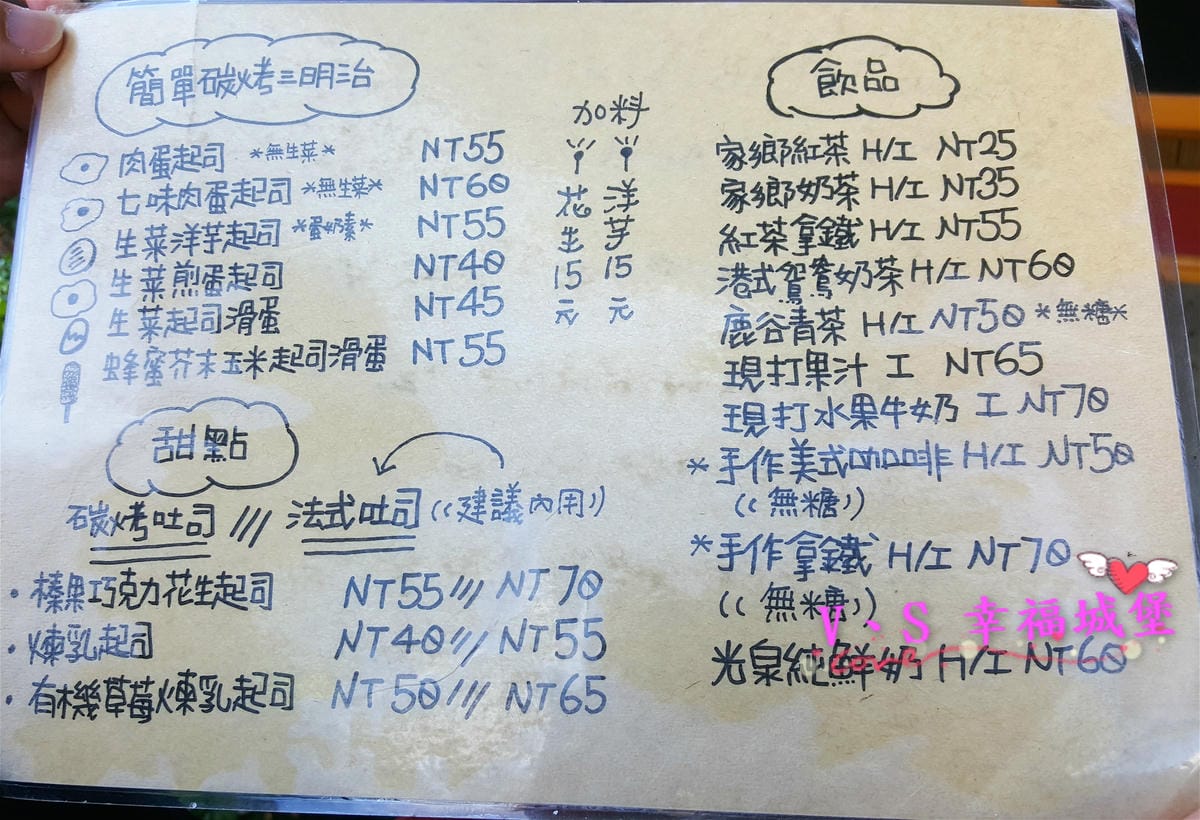 簡單碳烤三明治
肉蛋起司 *無生菜* NT55
七味肉蛋起司 *無生菜* NT60
生菜洋芋起司 *蛋奶素* NT55
生菜煎蛋起司 NT40
生菜起司滑蛋 NT45
蜂蜜芥末玉米起司滑蛋 NT55
加料
花生15元
洋芋15元
甜點
碳烤吐司 /// 法式吐司 ((建議內用))
·榛果巧克力花生起司 NT55 /// NT70
·煉乳起司 NT40 /// NT55
·有機草莓煉乳起司 NT50 /// NT65
飲品
家鄉紅茶 H/I NT25
家鄉奶茶 H/I NT35
紅茶拿鐵 H/I NT55
港式鴛鴦奶茶 H/I NT60
鹿谷青茶 H/I NT50 *無糖*
現打果汁 I NT65
現打水果牛奶 I NT70
*手作美式咖啡 H/I NT50
((無糖))
*手作拿鐵 H/I NT70
((無糖))
光泉純鮮奶 H/I NT60
V、S 幸福城堡